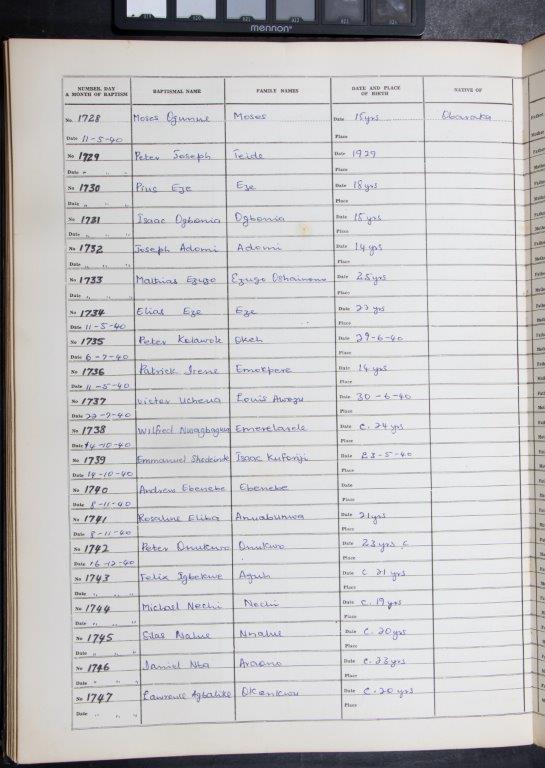 mennon
NUMBER, DAY & MONTH OF BAPTISM BAPTISMAL NAME FAMILY NAMES DATE AND PLACE OF BIRTH NATIVE OF
No. 1728 Moses Ogumue Moses Date 15yrs Obaraka
Date 11-5-40 Place
No 1729 Peter Joseph Teide Date 1929
Date " " " Place
No 1730 Pius Eze Eze Date 18 yrs
Date " " " Place
No 1731 Isaac Ogbonia Ogbonia Date 15 yrs
Date " " " Place
No 1732 Joseph Adomi Adomi Date 14 yrs
Date " " " Place
No 1733 Mathias Ezugo Ezugo Date 25yrs
Date " " " Place
No 1734 Elias Eze Eze Date 22 yrs
Date 11-5-40 Place
No 1735 Peter Kolawole Okeh Date 29-6-40
Date 6-7-40 Place
No 1736 Patrick Irene Emokpere Date 14 yrs
Date 11-5-40 Place
No 1737 Victor Uchena Louis Date 30-6-40
Date 22-7-40 Place
No 1738 Wilfred Date c. 24yrs
Date 14-10-40 Place
No 1739 Emmanuel Isaac Kuforiji Date 23-5-40
Date 14-10-40 Place
No 1740 Andrew Ebenebe Ebenebe Date
Date 8-11-40 Place
No 1741 Rosaline Date 21yrs
Date 8-11-40 Place
No 1742 Peter Onukwo Onukwo Date 23 yrs c
Date 16-12-40 Place
No 1743 Felix Igbokwe Aguh Date c 21 yrs
Date " " " Place
No 1744 Michael Nechi Nechi Date c. 19 yrs
Date " " " Place
No 1745 Silas Nalue Nnalue Date c. 20yrs
Date " " " Place
No 1746 Daniel Nba Araono Date c. 23 yrs
Date " " " Place
No 1747 Lawrence Agbalike Okonkwo Date c. 20 yrs
Date " " " Place